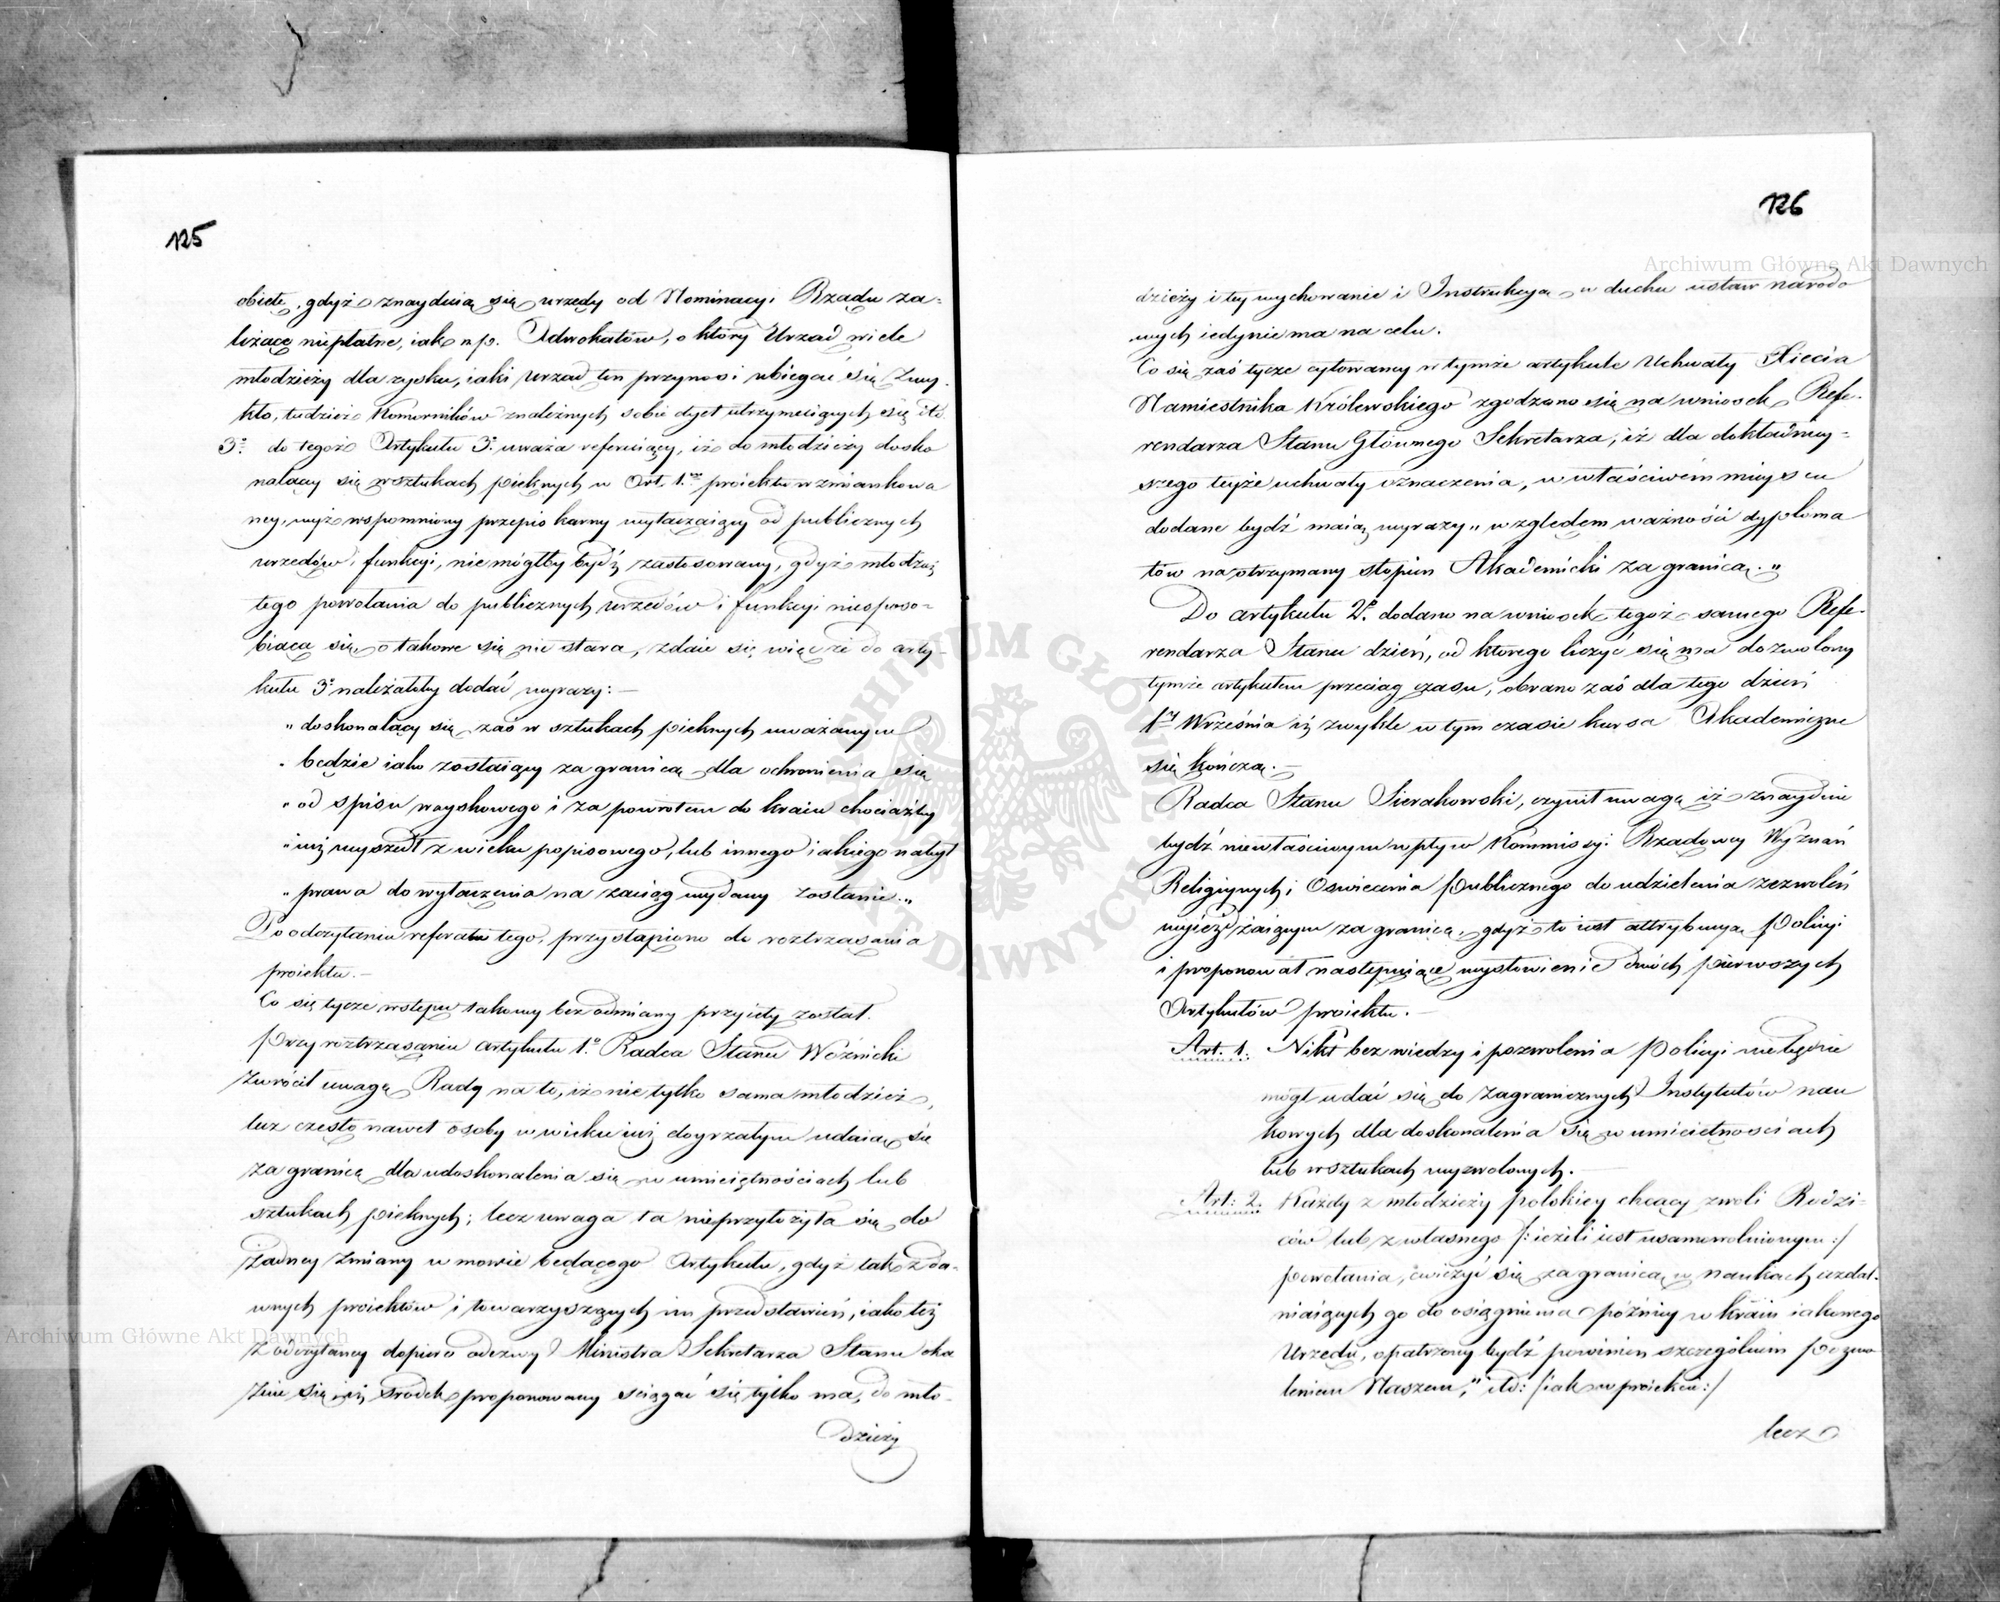 125
obięte, gdyż znayduią się urzędy od Nominacyi Rządu za-
liżące niepłatne, iak n.p. Adwokatów, o który Urząd wiele
młodzieży dla zysku, iaki urząd ten przynosi ubiegać się zwy-
kło, tudzież Komorników z należnych sobie dyet utrzymuiących się itd.
3o do tegoż Artykułu 3o uważa referuiący, iż do młodzieży dosko
nalącey się w sztukach pięknych w Art. 1m proiektu wzmiankowa
ney, wyż wspomniony przepis karny wyłączaiący od publicznych
urzędów i funkcyi, nie mógłby bydź zastosowany, gdyż młodzież
tego powołania do publicznych urzędów i funkcyi nieusposo-
biaiąca się, o takowe się nie stara, zdaie się więc że do arty-
kułu 3o należałoby dodać wyrazy: —
„doskonalący się zaś w sztukach pięknych uważanym
„będzie iako zostaiący za granicą dla ochronienia się
„od spisu woyskowego i za powrotem do kraiu chociażby
„iuż wyszedł z wieku popisowego, lub innego iakiego nabył
„prawa do wyłączenia na zaciąg wydany zostanie.„
Po odczytaniu referatu tego, przystąpiono do roztrząsania
proiektu. —
Co się tycze wstępu takowy bez odmiany przyięty został.
Przy roztrząsaniu artykułu 1o Radca Stanu Woźnicki
zwrócił uwagę Rady na to, iż nie tylko sama młodzież,
lecz często nawet osoby w wieku iuż doyrzałym udaią się
za granicę dla udoskonalenia się w umieiętnościach lub
sztukach pięknych; lecz uwaga ta nieprzyłożyła się do
żadney zmiany w mowie będącego Artykułu, gdyż tak z da-
wnych proiektów i towarzyszących im przedstawień, iako też
z odczytaney dopiero odezwy Ministra Sekretarza Stanu oka
zuie się iż środek proponowany ściągać się tylko ma, do mło-
dzieży
126
dzieży i tey wychowanie i Instrukcyą w duchu ustaw narodo
wych iedynie ma na celu.
Co się zaś tycze cytowaney w tymże artykule Uchwały Xięcia
Namiestnika Królewskiego zgodzono się na wniosek Refe-
rendarza Stanu Głównego Sekretarza, iż dla dokładniey-
szego teyże uchwały oznaczenia, w właściwém mieyscu
dodane bydź maią wyrazy „względem ważności dyploma
tów na otrzymany stopień Akademicki za granicą.„
Do artykułu 2o dodano na wniosek tegoż samego Refe-
rendarza Stanu dzień, od którego liczyć się ma dozwolony
tymże artykułem przeciąg czasu, obrano zaś dla tego dzień
1y Września iż zwykle w tym czasie kursa Akademiczne
się kończą. —
Radca Stanu Sierakowski, czynił uwagę iż znayduie
bydź niewłaściwym wpływ Kommissyi Rządowey Wyznań
Religiynych i Oświecenia Publicznego do udzielenia zezwoleń
wyieżdżaiącym za granicę, gdyż to iest attrybucyą Policyi
i proponował następuiące wysłowienie dwóch pierwszych
Artykułów proiektu. —
Art. 1. Nikt bez wiedzy i pozwolenia Policyi niebędzie
mógł udać się do Zagranicznych Instytutów nau
kowych dla doskonalenia się w umieiętnościach
lub w sztukach wyzwolonych. —
Art: 2. Każdy z młodzieży polskiey chcący z woli Rodzi-
ców lub z własnego /: ieżeli iest usamowolnionym :/
powołania, ćwiczyć się za granicą w naukach uzdat-
niaiących go do osiągnienia późniey w kraiu iakowego
Urzędu, opatrzony bydź powinien szczególnem pozwo
leniem Naszem,„ itd: /: iak w proiekcie :/
lecz
Archiwum Główne Akt Dawnych
Archiwum Główne Akt Dawnych
ARCHIWUM GŁÓWNE AKT DAWNYCH